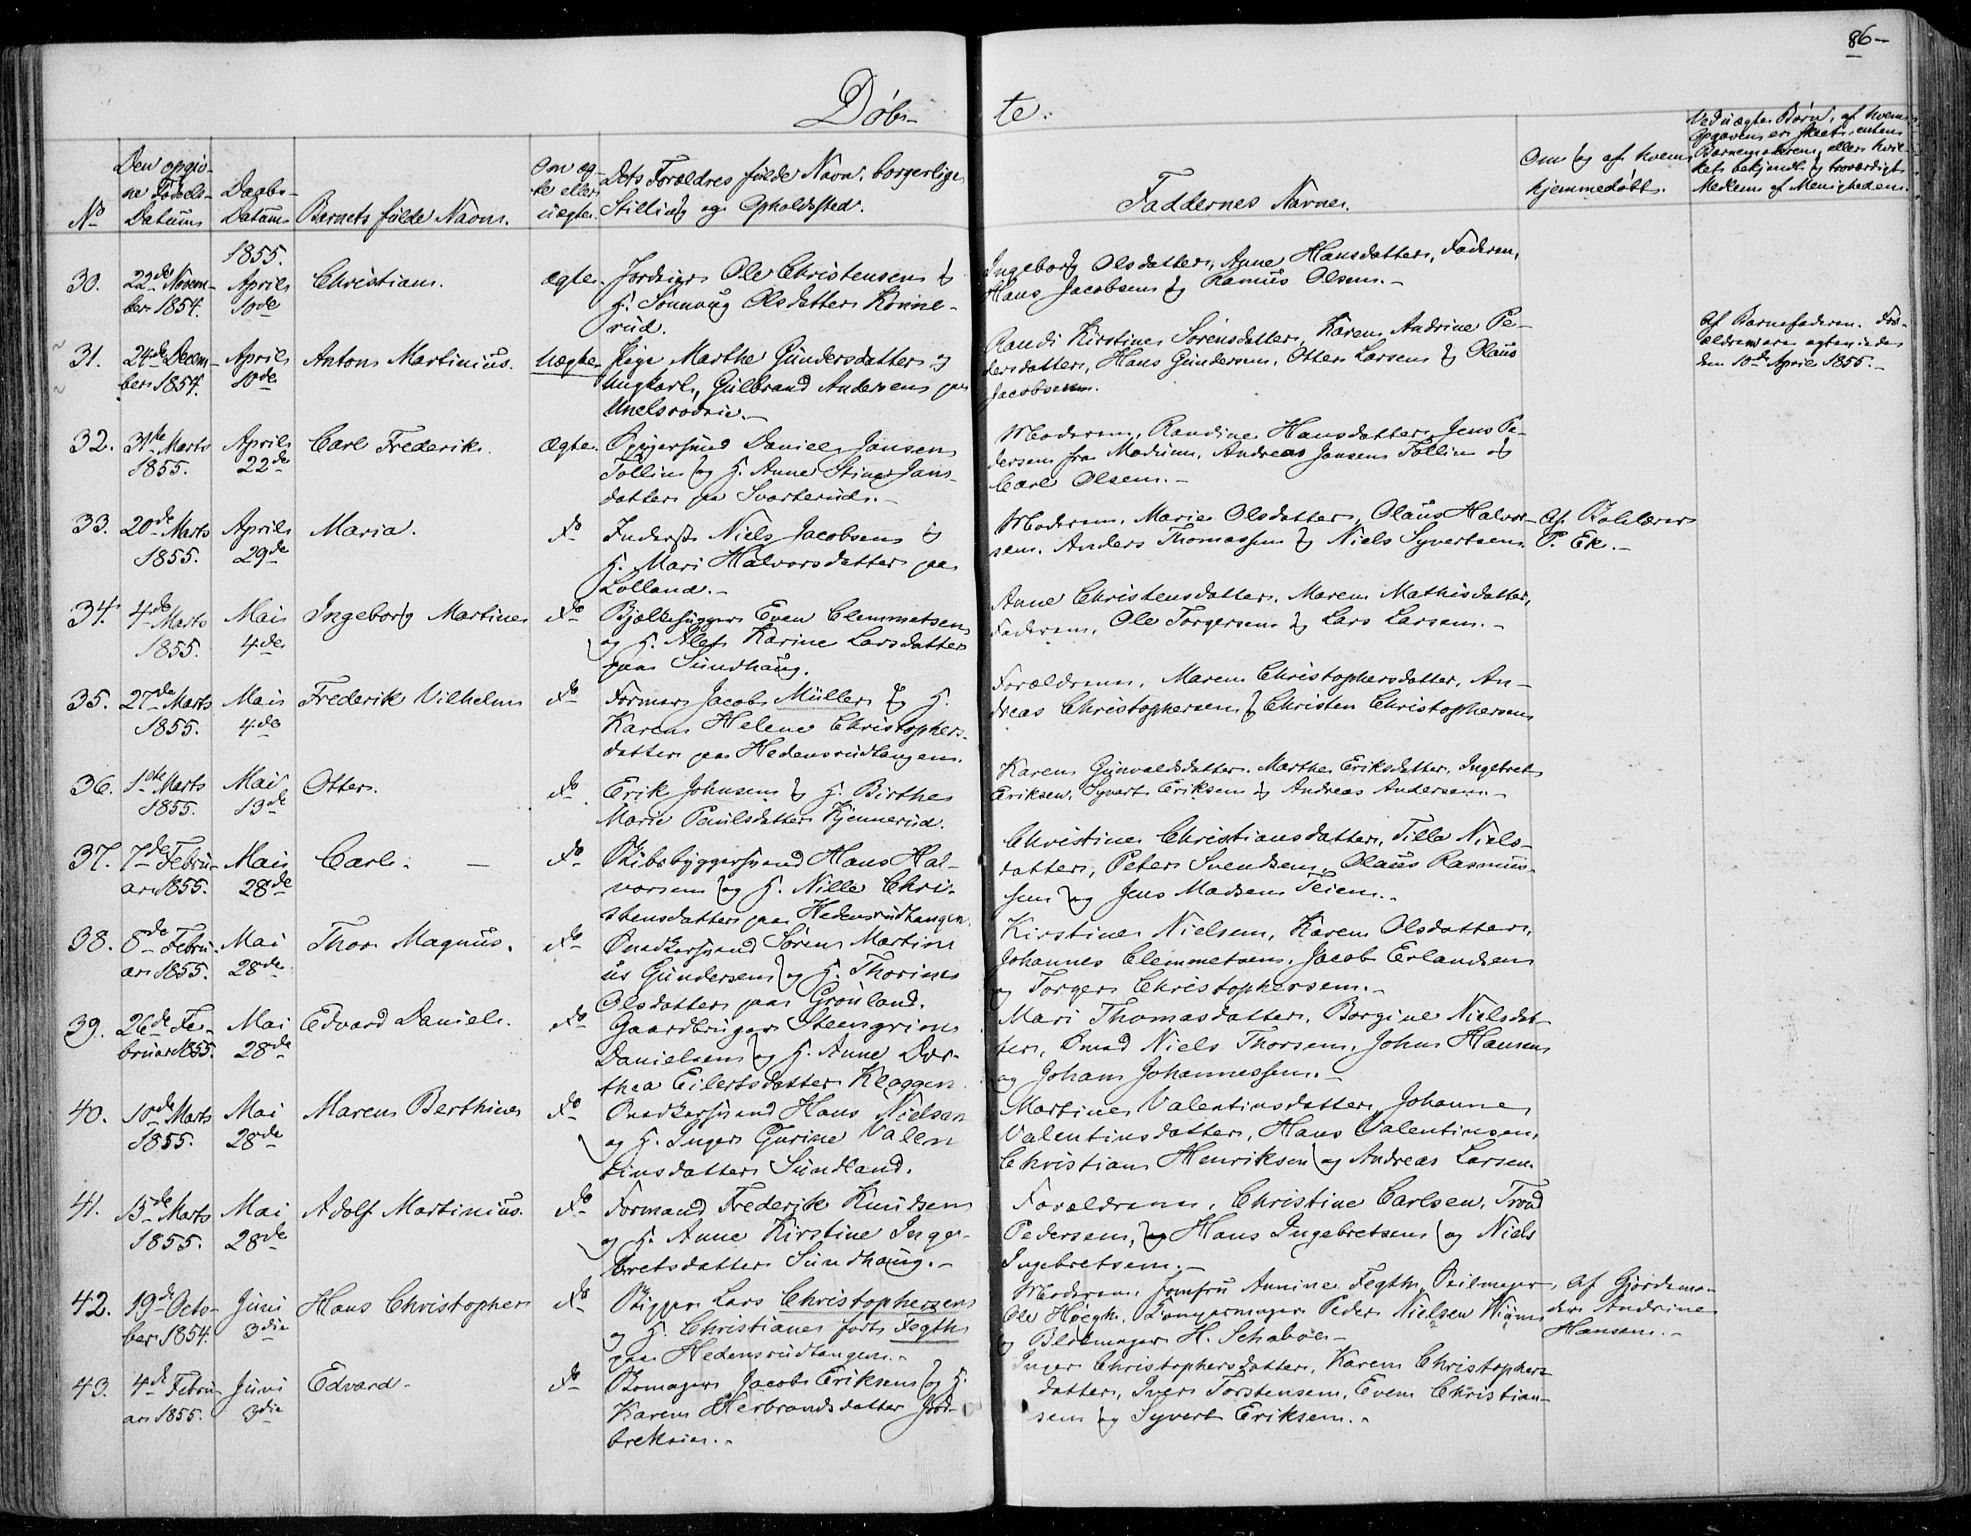 86-
Døb-
te.
Den opgiv-
ne Fødsels-
Datum
Daabs-
Datum
No
Barnets fulde Navn.
Om æg-
te eller
uægte.
Dets Forældres fulde Navn, borgerlige
Stilling og Opholdssted.
Faddernes Navne.
Om og af hvem
hjemmedøbt.
Ved uægte Børn, af hvem
Opgaven er skeet, enten
Barnemoderen, eller hvil-
ket bekjendt og troværdigt
Medlem af Menigheden.
1855.
30.
22de Novem-
ber 1854.
April
10de
Christian.
ægte.
Jordeier Ole Christensen og
H. Olsdatter
rud.
Ingeborg Olsdatter, Anne Hansdatter, Faderen,
Hans Jacobsen og Olsen.-
31.
24de Decem-
ber 1854.
April
10de
Anton Martinius.
Uægte
Pige Marthe Gundersdatter og
Ungkarl, Gulbrand Andersen paa
Randi Kirstine Sørensdatter, Karen Andrine Pe-
dersdatter, Hans Gundersen, Otter Larsen og Olaus
Jacobsen.
Af Barnefaderen. For-
ældrene ere ægteviede
den 10de April 1855.-
32.
31te Marts
1855.
April
22de
Carl Frederik.
ægte.
Daniel Jansen
Tollin og H. Anne Stine Jans-
datter paa Svarterud.-
Moderen, Randine Hansdatter, Jens Pe-
dersen fra Modum, Andreas Jansen Tollin og
Carl Olsen.-
33.
20de Marts
1855.
April
29de
Maria.
do
Inderst Niels Jacobsen og
H. Mari Halvorsdatter paa
Lolland.-
Moderen, Marie Olsdatter, Olaus Halvor-
sen, Anders Thomassen og Niels Syvertsen.
Af Skolelærer
P. Ek.-
34.
4de Marts
1855.
Mai
4de
Ingeborg Martine
do
Bjælkehugger Even Clemmetsen
og H. Karine Larsdatter
paa Sundhaug.
Anne Christensdatter, Maren Mathisdatter,
Faderen, Ole Torgersen og Lars Larsen.-
35.
27de Marts
1855.
Mai
4de
Frederik Vilhelm
do
Former Jacob Müller og H.
Karen Helene Christophers-
datter paa Hedensrudtangen.
Forældrene, Maren Christophersdatter, An-
dreas Christophersen og Christen Christophersen
36.
1ste Marts
1855.
Mai
13de
Otter.
do
Erik Johnsen og H. Birthe
Marie Paulsdatter Kjennerud.
Karen Gunvaldsdatter, Marthe Eriksdatter, Ingebret
Eriksen, Syvert Eriksen og Andreas Andersen.-
37.
7de Febru-
ar 1855.
Mai
28de
Carl.-
do
Skibsbyggersvend Hans Hal-
vorsen og H. Nille Chri-
stensdatter paa Hedensrudtangen.
Christine Christiansdatter, Tilla Niels-
datter, Peter Svendsen, Olaus Rasmus-
sen og Jens Madsen Teien.-
38.
8de Febru-
ar 1855.
Mai
28de
Thor Magnus.
do
Snedkersvend Søren Martin
us Gundersen og H. Thorine
Olsdatter paa Grønland.
Kirstine Nielsen, Karen Olsdatter,
Johannes Clemmetsen, Jacob Erlandsen
og Torger Christophersen.-
39.
26de Fe-
bruar 1855.
Mai
28de
Edvard Daniel.
do
Gaardbruger Steengrim
Danielsen og H. Anne Dor-
thea Eilertsdatter Kloggen
Mari Thomasdatter, Borgine Nielsdat-
ter, Smed Niels Thorsen, John Hansen
og Johan Johannessen.-
40.
10de Marts
1855.
Mai
28de
Maren Berthine
do
Snedkersvend Hans Nielsen
og H. Inger Gurine Valen
tinsdatter Sundland.
Martine Valentinsdatter, Johanne
Valentinsdatter, Hans Valentinsen,
Christian Henriksen og Andreas Larsen.
41.
15de Marts
1855.
Mai
28de
Adolf Martinius.
do
Formand Frederik Knudsen
og H. Anne Kirstine Inge-
bretsdatter Sundhaug.-
Forældrene, Christine Carlsen, Trond
Pedersen, Hans Ingebretsen og Niels
Ingebretsen.-
42.
19de Octo-
ber 1854.
Juni
3die
Hans Christopher
do
Skipper Lars Christophersen
og H. Christiane født Fegth
paa Hedensrudtangen.-
Moderen, Jomfru Annine Fegth, Seilmager
Ole Høegh, Peder Nielsen
og H. Schabo.-
Af Gjordemo-
der Andrine
Hansen.-
43.
4de Febru-
ar 1855.
Juni
3die
Edvard.-
do
Skomager Jacob Eriksen og H.
Karen Herbrandsdatter Jord-
brekeie.-
Inger Christophersdatter, Karen Christophers-
datter, Iver Torstensen, Even Christian-
sen og Syvert Eriksen.-